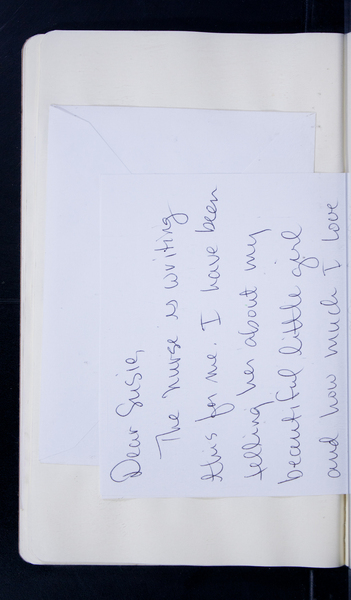 Dear Susie,
The nurse is writing
this for me. I have been
telling her about my
beautiful little girl
and how much I love